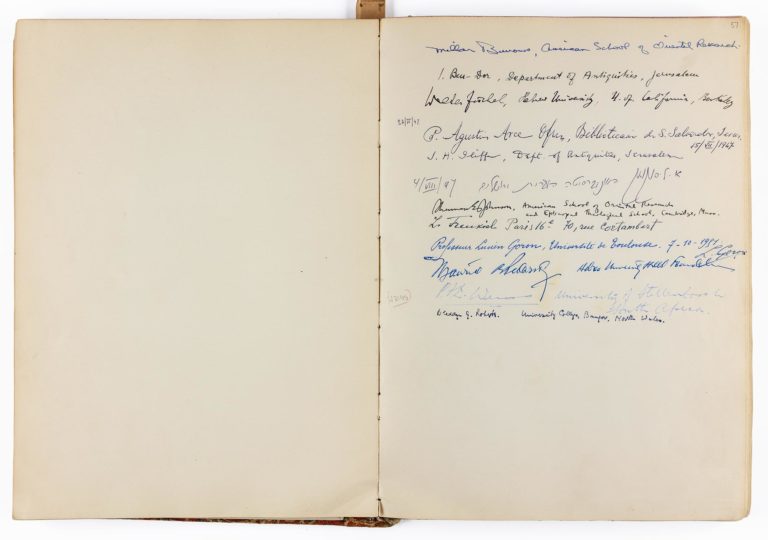 57
Millar Burrows, American School of Oriental Research
I. Ben-Dor, Department of Antiquities, Jerusalem
Walter Fischel, Hebrew University, U. of California, Berkeley
P. Agustin Arce Ofm, Bibliotecario de S. Salvador, Jerus.
15/VII/1947
J. H. Iliffe, Dept. of Antiquities, Jerusalem
4/VIII/47 האוניברסיטה העברית ירושלים
Sherman E. Johnson, American School of Oriental Research
and Episcopal Theological School, Cambridge, Mass.
L. Frenkiel Paris 16e 70, rue Cortambert
Professeur Lucien Goron, Université de Toulouse. 7-10-1951 L. Goron
Hebrew University Hillel Foundation
University of Stellenbosch
South Africa.
University College, Bangor, North Wales.